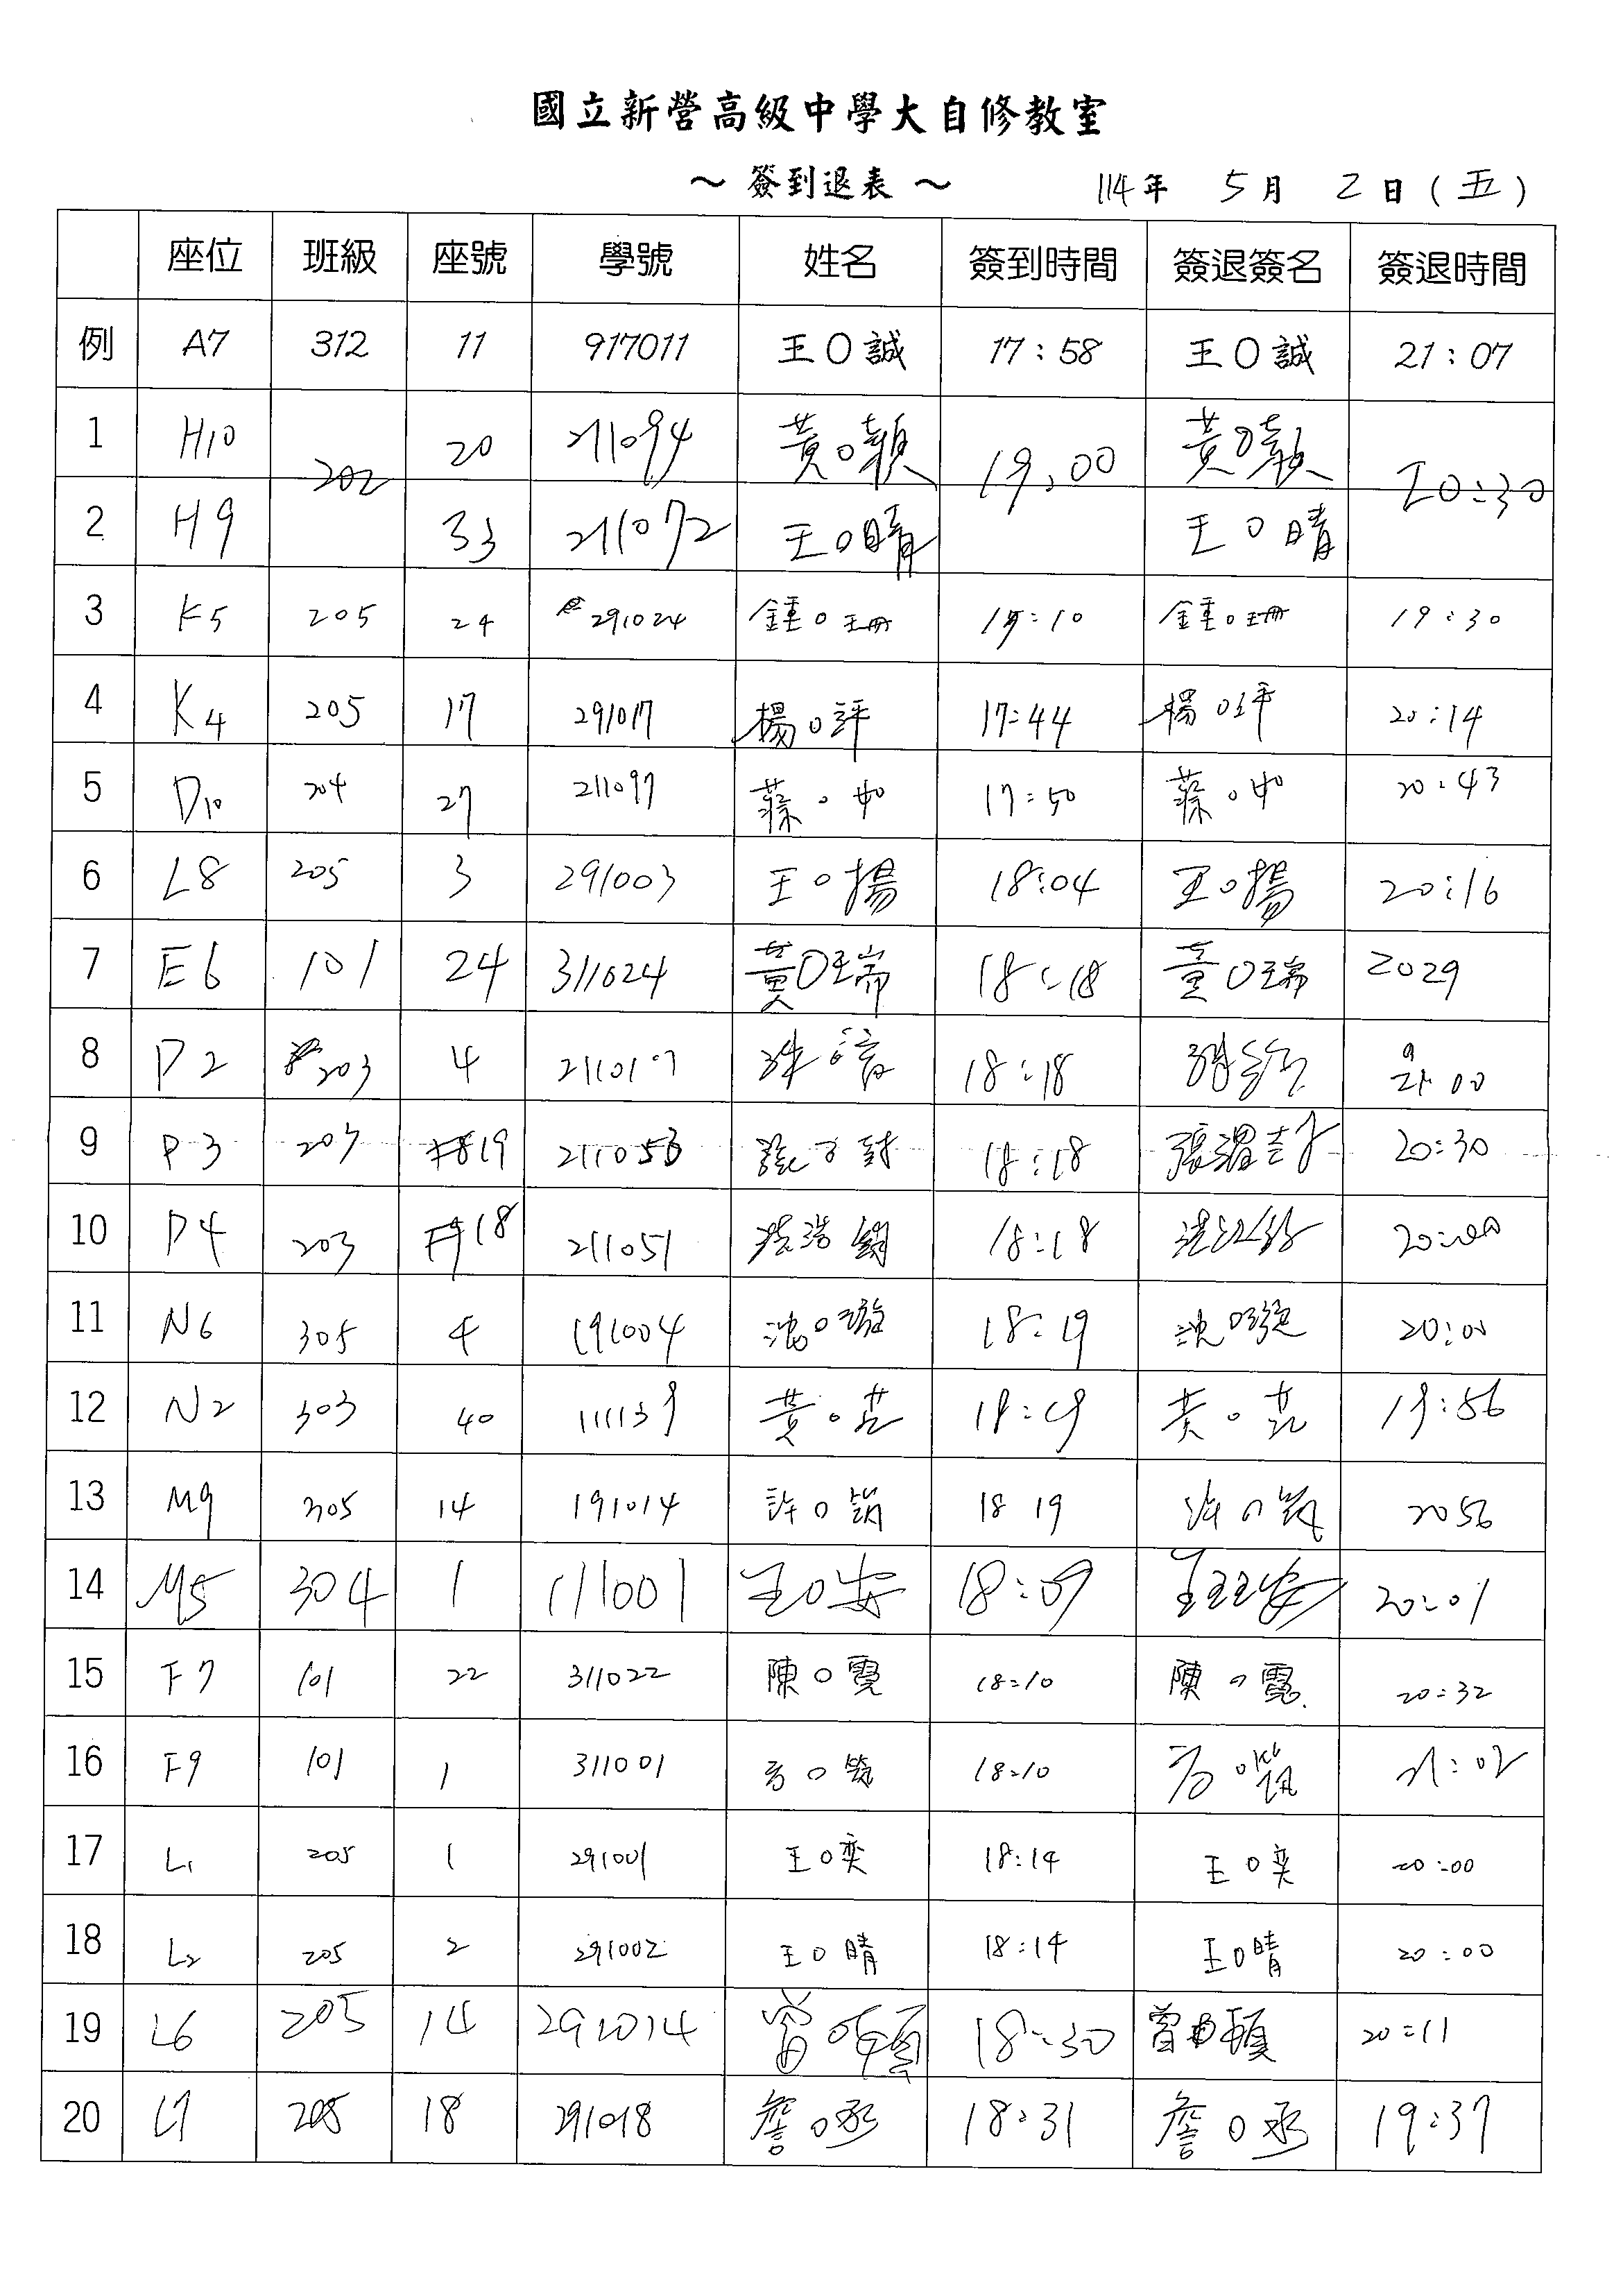 國立新營高級中學大自修教室
～ 簽到退表 ～ 114年 5月 2日(五)
座位 班級 座號 學號 姓名 簽到時間 簽退簽名 簽退時間
例 A7 312 11 917011 王O誠 17:58 王O誠 21:07
1 H10 202 20 211094 黃O穎 19:00 黃O穎 20:30
2 H9 33 211072 王O晴 王O晴
3 K5 205 24 291024 鍾O珊 19:30
4 K4 205 17 291017 楊O評 17:44 楊O評 20:14
5 D10 204 27 211097 蔡O如 17:50 蔡O如 20:43
6 L8 205 3 291003 王O揚 18:04 王O揚 20:16
7 E6 101 24 311024 黃O瑞 18:18 黃O瑞 2029
8 P2 203 4 18:18
9 P3 203 19 18:18 20:30
10 P4 203 18 211051 18:18
11 N6 305 4 191004 沈O璇 18:19 沈O璇 20:00
12 N2 303 40 111139 黃O芸 18:19 黃O芸 19:56
13 M9 305 14 191014 許O筑 18 19 許O筑 2056
14 M5 304 1 111001 王O安 18:09 20:01
15 F7 101 22 311022 陳O霓 18:10 陳O霓 20:32
16 F9 101 1 311001 18:10 21:02
17 L1 205 1 291001 王O奕 18:14 王O奕 20:00
18 L2 205 2 291002 王O晴 18:14 王O晴 20:00
19 L6 205 14 291014 曾O碩 18:30 曾 20:11
20 L7 205 18 291018 詹O丞 18:31 詹O丞 19:37